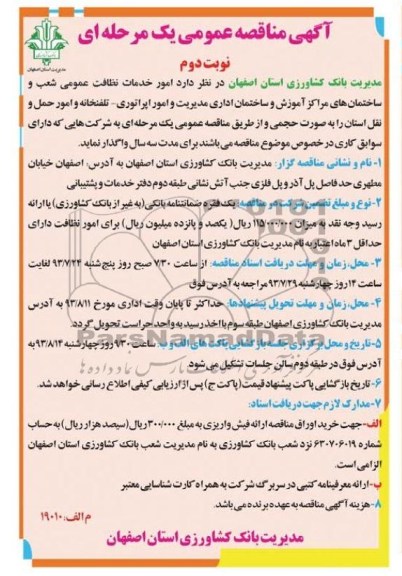 آگهی مناقصه عمومی یک مرحله ای
نوبت دوم
مدیریت بانک کشاورزی استان اصفهان
مدیریت بانک کشاورزی استان اصفهان در نظر دارد امور خدمات نظافت عمومی شعب و
ساختمان های مراکز آموزش و ساختمان اداری مدیریت و امور اپراتوری - تلفنخانه و امور حمل و
نقل استان را به صورت حجمی و از طریق مناقصه عمومی یک مرحله ای به شرکت هایی که دارای
سوابق کاری در خصوص موضوع مناقصه می باشند برای مدت سه سال واگذار نماید.
۱- نام و نشانی مناقصه گزار: مدیریت بانک کشاورزی استان اصفهان به آدرس: اصفهان خیابان
مطهری حد فاصل پل آذر و پل فلزی جنب آتش نشانی طبقه دوم دفتر خدمات و پشتیبانی
۲- نوع و مبلغ تضمین شرکت در مناقصه: یک فقره ضمانتنامه بانکی (به غیر از بانک کشاورزی) یا ارائه
رسید وجه نقد به میزان ۱۱۵/۰۰۰/۰۰۰ ریال (یکصد و پانزده میلیون ریال) برای امور نظافت دارای
حداقل ۳ ماه اعتبار به نام مدیریت بانک کشاورزی استان اصفهان
۳- محل، زمان و مهلت دریافت اسناد مناقصه: از ساعت ۷/۳۰ صبح روز پنج شنبه ۹۳/۷/۲۴ لغایت
ساعت ۱۴ روز چهارشنبه ۹۳/۷/۲۹ مراجعه به آدرس فوق
۴- محل، زمان و مهلت تحویل پیشنهادها: حداکثر تا پایان وقت اداری مورخ ۹۳/۸/۱۱ به آدرس
مدیریت بانک کشاورزی اصفهان طبقه سوم با اخذ رسید به واحد حراست تحویل گردد.
۵- تاریخ و محل برگزاری جلسه بازگشایی پاکت های الف و ب: ساعت ۹/۳۰ روز چهارشنبه ۹۳/۸/۱۴ به
آدرس فوق در طبقه دوم سالن جلسات تشکیل می شود
۶- تاریخ بازگشایی پاکت پیشنهاد قیمت (پاکت ج) پس از ارزیابی کیفی اطلاع رسانی خواهد شد.
۷- مدارک لازم جهت دریافت اسناد:
الف- جهت خرید اوراق مناقصه ارائه فیش واریزی به مبلغ ۳۰۰/۰۰۰ ریال (سیصد هزار ریال) به حساب
شماره ۶۳۰۷۰۶۰۱۹ نزد شعب بانک کشاورزی به نام مدیریت شعب بانک کشاورزی استان اصفهان
الزامی است.
ب- ارائه معرفینامه کتبی در سربرگ شرکت به همراه کارت شناسایی معتبر
۸- هزینه آگهی مناقصه به عهده برنده می باشد.
م الف: ۱۹۰۱۰
مدیریت بانک کشاورزی استان اصفهان